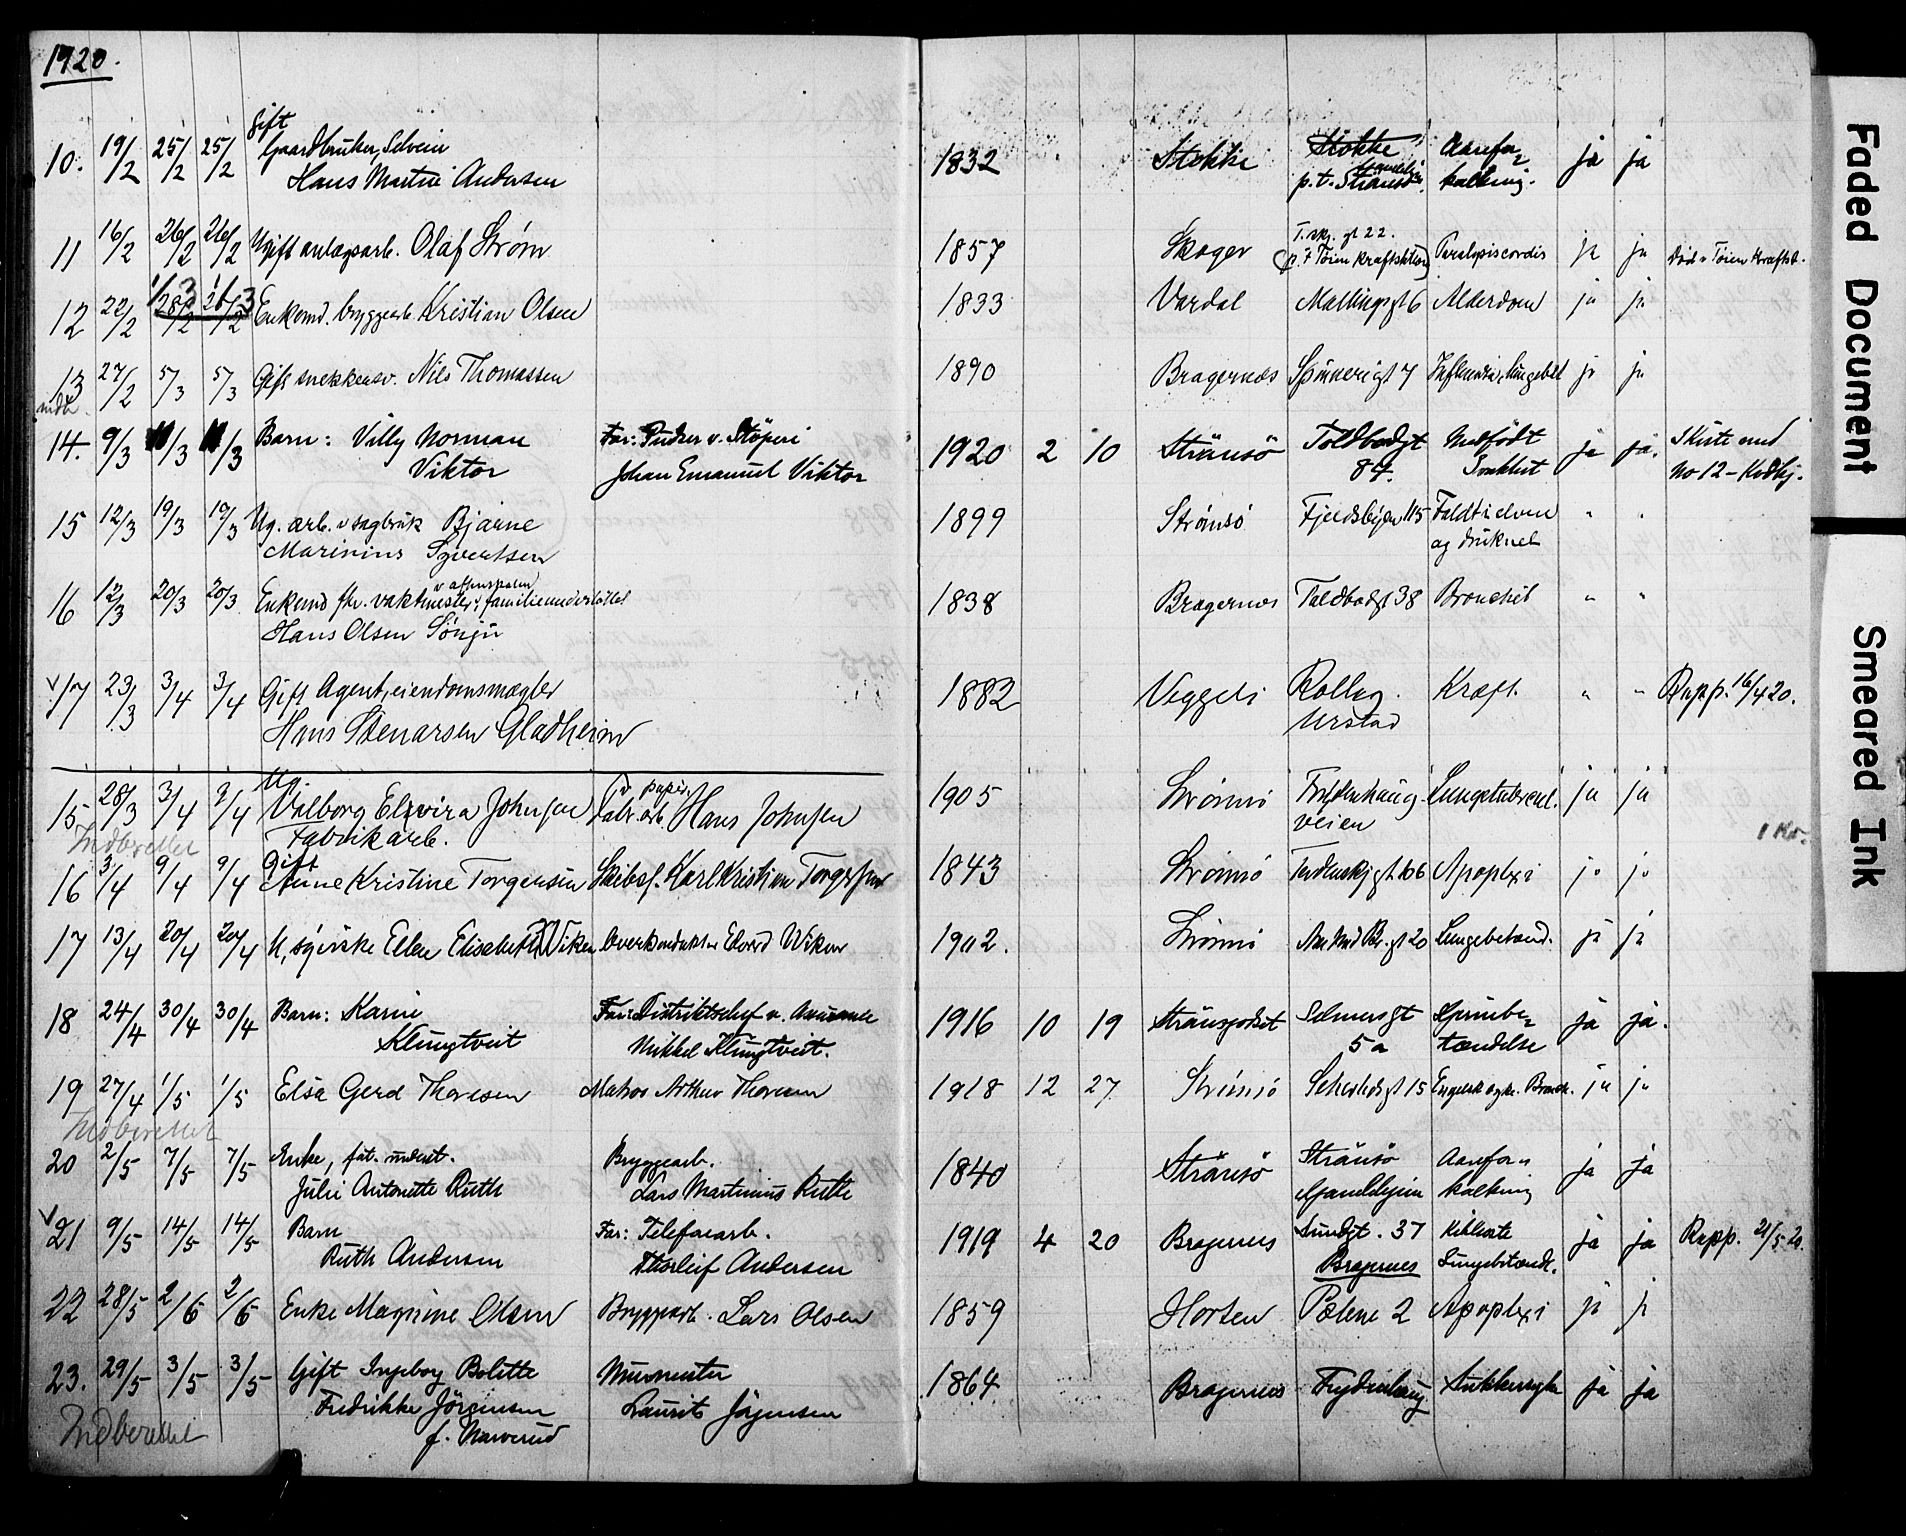 1920.
10. 19/2 25/2 25/2 Gift Gaardbruker, Selveier 1832 Stokke Stokke Aarefor- ja ja
Hans Martin Andersen p.t. Strømsö kalkning.
11 16/2 26/2 26/2 Ugift anlægsarb. Olaf Strøm 1857 Skoger T.skj. gt 22. Paralysis cordis ja ja Död v Töien Kraftst.
(p.t Töien Kraftstation)
12 22/2 28/2 26/2 1/3 1/3 Enkemd. bryggearb Kristian Olsen 1833 Vardal Mallingsgt 6 Alderdom ja ja
13 27/2 5/3 5/3 Gift snekkersv. Nils Thomassen 1890 Bragernæs Spinnerigt 7 Influensa, Lungebet ja ja
indb.
14. 9/3 11/3 11/3 Barn: Villy Norman Far: Pudser v. Stöperi 1920 2 10 Strømsö Toldbodgt Medfödt ja ja. Kiste med
Viktor Johan Emanuel Viktor 84. Svakhet No 12 - Kredkj.
15 12/3 19/3 19/3 Ug. arb. v sagbruk Bjarne 1899 Strömsö Fjeldsbyen 115 Faldt i elven " "
Marinius Syvertsen og druknet
16 12/3 20/3 20/3 Enkemd fhv. vaktmester v. familieunderstöttet 1838 Bragernes Toldbodgt 38 Bronchit " "
Hans Olsen Sönju
17 23/3 3/4 3/4 Gift Agent, eiendomsmægler 1882 Veggeli Rollag. Kræft. " " Rapp. 16/4 20.
Hans Stenarsen Gladheim
15 28/3 3/4 3/4 Ug. Valborg Elvira Johnsen Fabr. arb. v papir. Hans Johnsen 1905 Strömsö Frydenhaug- Lungetuberkul. ja ja
Indberettet Fabrikarb. veien 1 Kr.
16 3/4 9/4 9/4 Gift Anne Kristine Torgersen Skibsf. Karl Kristian Torgersen 1843 Strömsö Tordenskj gt 106 Apoplexi ja ja
17 13/4 20/4 20/4 U, syerske Ellen Elisabeth Wiken Overkonduktör Edvard Wiken 1902. Strömsö Lungebetænd. ja ja
18 24/4 30/4 30/4 Barn: Karin Far: Distriktschef v. 1916 10 19 Strømsgodset Selmersgt Hjernebe- ja ja.
Klungtveit Mikkel Klungtveit. 5a tændelse
19 27/4 1/5 1/5 Elsa Gerd Thoresen Matros Arthur Thoresen 1918 12 27 Strömsö Schwartzgt 15 Engelsk syke. Bronch. ja ja
Indberettet
20 2/5 7/5 7/5 Enke, fat. underst. Bryggearb. 1840 Strømsö Strømsö Aarefor- ja ja
Julie Antonette Ruth Lars Martinius Ruth Gamlehjem kalkning
21 9/5 14/5 14/5 Barn Far: Telefonarb. 1919 4 20 Bragernes Sundgt. 37 Kikhoste ja ja Rapp. 21/5 20.
Ruth Andersen Thorleif Andersen Bragernes Lungebetænd.
22 28/5 2/6 2/6 Enke Magnine Olsen Bryggearb. Lars Olsen 1859 Horten Pælene 2 Apoplexi ja ja
23. 29/5 3/5 3/5 Gift Ingeborg Bolette Murmester 1864 Bragernes Frydenhaug Sukkersyke ja ja
Fredrikke Jörgensen Laurits Jörgensen
Indberettet f. Narverud
Faded Document
Smeared Ink